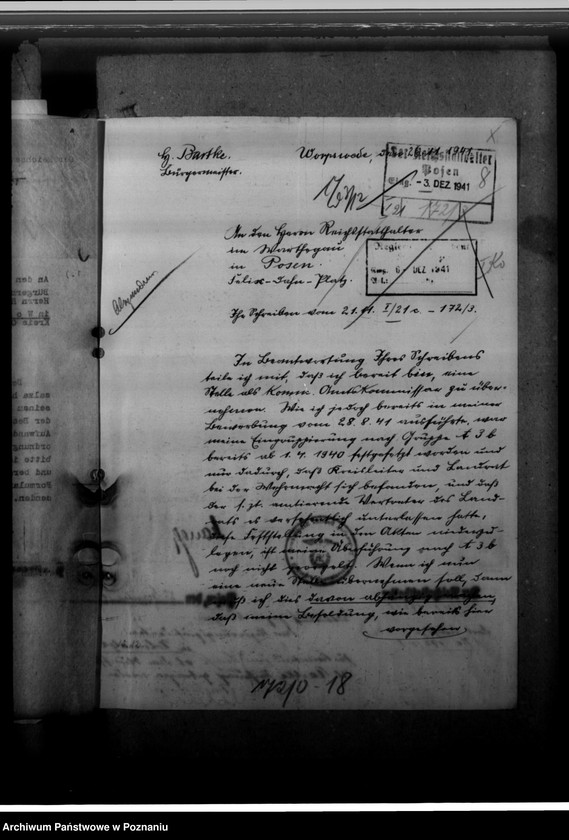 H. Bartke.
Bürgermeister.
Worpswede, den 26.11.1941.
Der Reichsstatthalter
Posen
Eing. - 3. DEZ 1941
8
I 21 172/3
An den Herrn Reichsstatthalter
im Warthegau
in Posen.
Felix-Dahn-Platz.
6 DEZ 1941
Ihr Schreiben vom 21.11. I/21 c. - 172/3.
In Beantwortung Ihres Schreibens
teile ich mit, daß ich bereit bin, eine
Stelle als komm. Amtskommissar zu über-
nehmen. Wie ich jedoch bereits in meiner
Bewerbung vom 28.8.41 ausführte, war
meine Eingruppierung nach Gruppe A 3 b
bereits ab 1.4.1940 festgesetzt worden und
nur dadurch, daß Kreisleiter und Landrat
bei der Wehrmacht sich befanden, und daß
der s.Zt. amtierende Vertreter des Land-
rats es versehentlich unterlassen hatte,
diese Feststellung in den Akten niederzu-
legen, ist meine Überführung nach A 3 b
noch nicht geregelt. Wenn ich nun
eine neue Stelle übernehmen soll, dann
muß ich dies davon abhängig machen,
daß meine Besoldung, wie bereits hier
vorgesehen
172/0-18
An den
Bürgerm
Herrn
Kreis
Archiwum Państwowe w Poznaniu